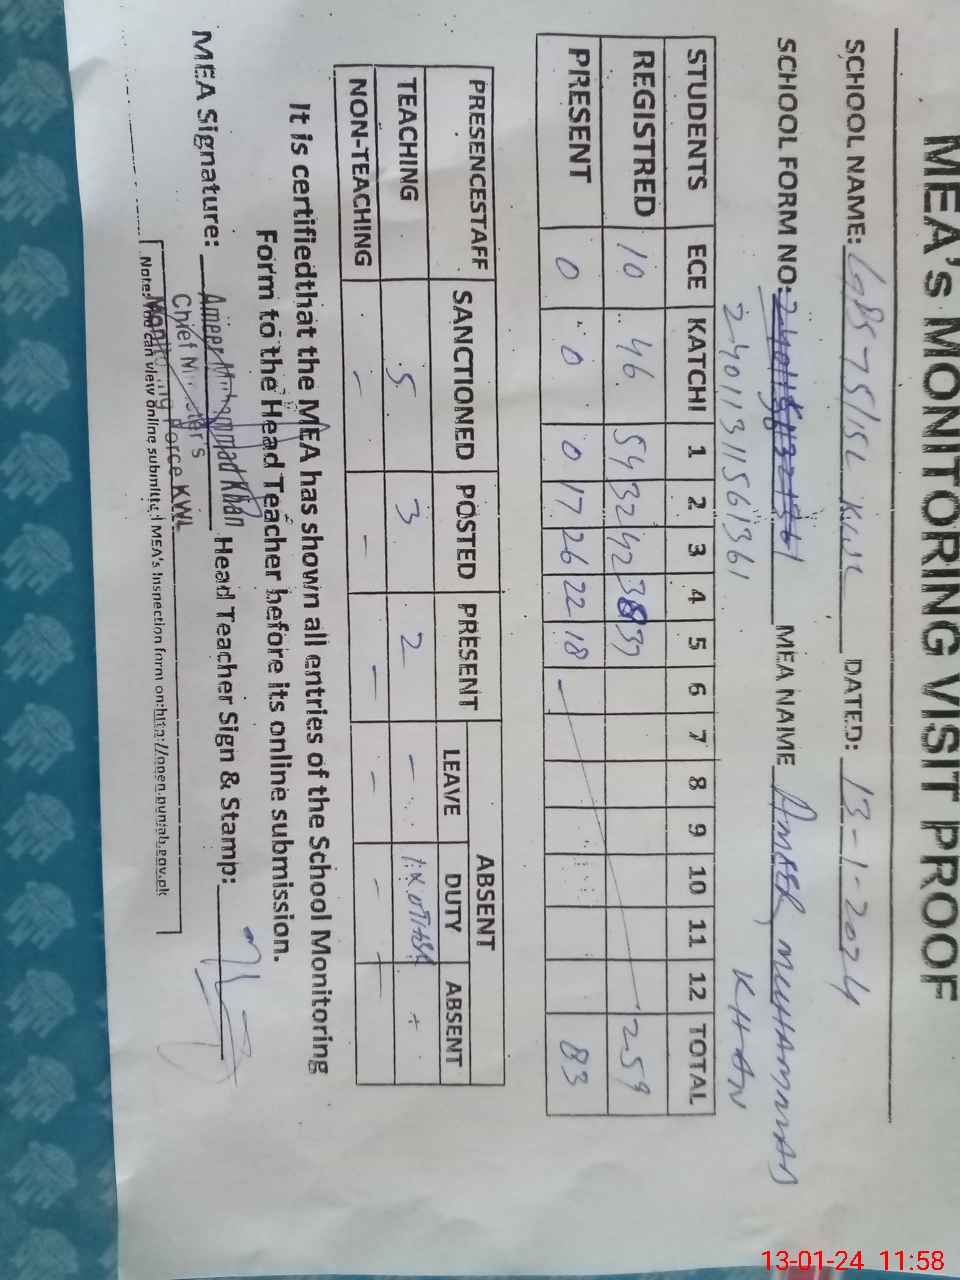 MEA's MONITORING VISIT PROOF
SCHOOL NAME: GBS 75/15L KWL DATED: 13-1-2024
SCHOOL FORM NO: MEA NAME AMEER MUHAMMAD
24011311561361 KHAN
STUDENTS ECE KATCHI 1 2 3 4 5 6 7 8 9 10 11 12 TOTAL
REGISTRED 10 46 54 32 42 38 37 259
PRESENT 0 0 0 17 26 22 18 83
PRESENCESTAFF SANCTIONED POSTED PRESENT ABSENT
LEAVE DUTY ABSENT
TEACHING 5 3 2 -
NON-TEACHING - - - - -
It is certifiedthat the MEA has shown all entries of the School Monitoring
Form to the Head Teacher before its online submission.
MEA Signature: Head Teacher Sign & Stamp:
Ameer Muhammad Khan
Chief Minister's
Monitoring Force KWL
Note: You can view online submitted MEA's Inspection form on:http://open.punjab.gov.pk
13-01-24 11:58